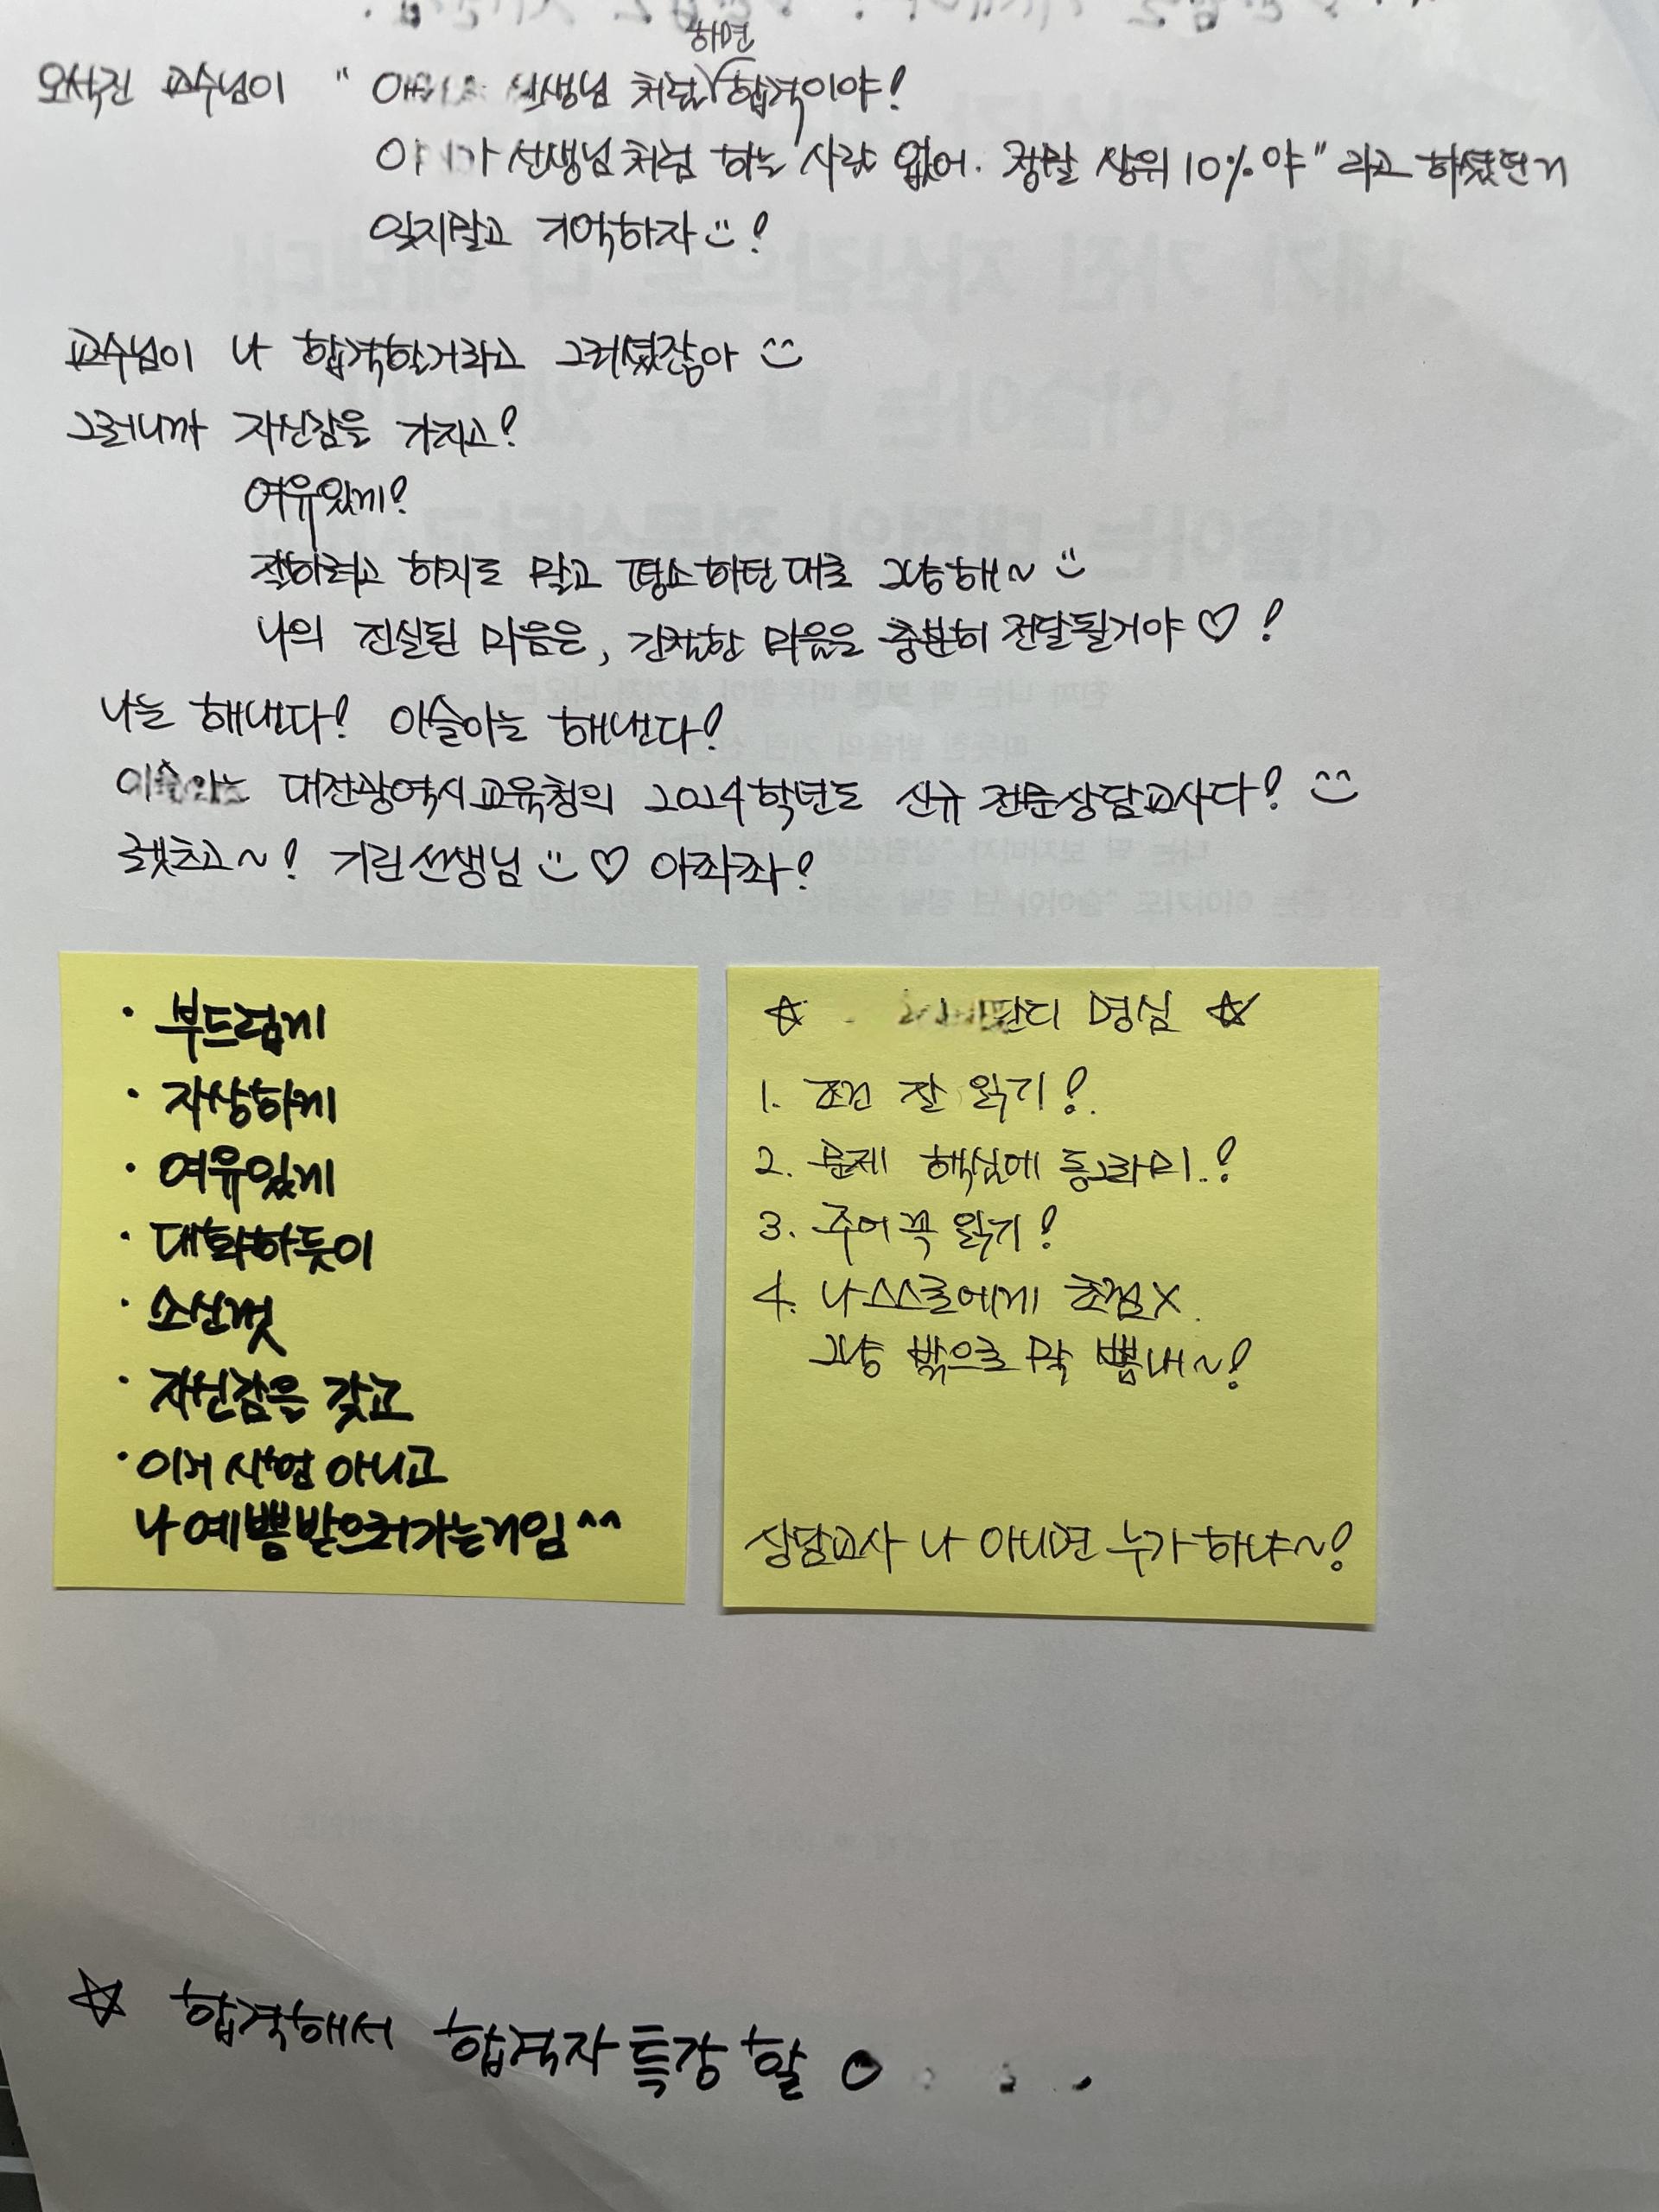 하면
오석진 교수님이 " 선생님 처럼 합격이야!
선생님처럼 하는 사람 없어. 정말 상위 10%야" 라고 하셨던거
잊지말고 기억하자!
교수님이 나 합격할거라고 그러셨잖아
그러니까 자신감을 가지고!
여유있게!
잘하려고 하지도 말고 평소하던대로 그냥해~
나의 진실된 마음은, 간절한 마음은 충분히 전달될거야♡!
나는 해낸다! 이슬아는 해낸다!
대전광역시교육청의 2024학년도 신규 전문상담교사다! ^^
렛츠고~! 기린선생님 ♡ 아좌좌!
· 부드럽게
· 자상하게
· 여유있게
· 대화하듯이
· 소신껏
· 자신감을 갖고
· 이거 시험 아니고
나 예쁨받으러가는거임^^
☆ 단디 명심 ☆
1. 조건 잘 읽기!
2. 문제 핵심에 동그라미!
3. 주어 꼭 읽기!
4. 나 스스로에게 초점X.
그냥 밖으로 막 뽐내~!
상담교사 나 아니면 누가 하냐~!
☆ 합격해서 합격자특강 할